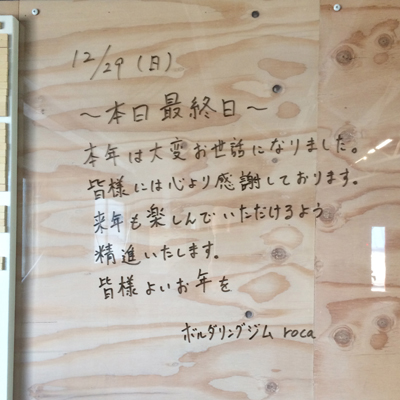 12/29(日)
～本日最終日～
本年は大変お世話になりました。
皆様には心より感謝しております。
来年も楽しんでいただけるよう
精進いたします。
皆様よいお年を
ボルダリングジム roca